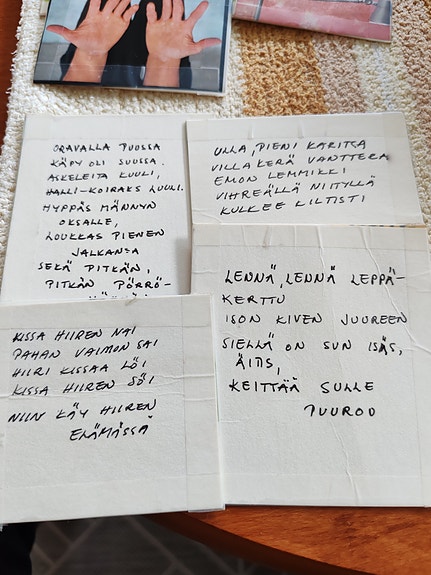 ORAVALLA PUOSSA
KÄPY OLI SUUSSA.
ASKELEITA KUULI,
HALLI-KOIRAKS LUULI.
HYPPÄS MÄNNYN
OKSALLE,
LOUKKAS PIENEN
JALKANSA
SEKÄ PITKÄN,
PITKÄN PÖRRÖ-
ULLA, PIENI KARITSA
VILLA KERÄ VANTTERA
EMON LEMMIKKI
VIHREÄLLÄ NIITYLLÄ
KULKEE KILTISTI
KISSA HIIREN NAI
PAHAN VAIMON SAI
HIIRI KISSAA LÖI
KISSA HIIREN SÖI
NIIN KÄY HIIREN
ELÄMÄSSÄ
LENNÄ, LENNÄ LEPPÄ-
KERTTU
ISON KIVEN JUUREEN
SIELLÄ ON SUN ISÄS,
ÄITIS,
KEITTÄÄ SULLE
PUUROO